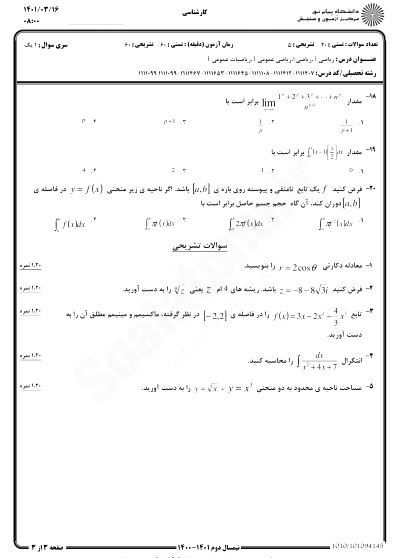 ۱۴۰۱/۰۳/۱۶
۰۸:۰۰
کارشناسی
دانشگاه پیام نور
مرکز آزمون و سنجش
سری سوال: ۱ یک
زمان آزمون (دقیقه): تستی: ۶۰ تشریحی: ۶۰
تعداد سوالات: تستی: ۲۰ تشریحی: ۵
عنوان درس: ریاضی
رشته تحصیلی/کد درس:
۱۸- مقدار lim (1^p + 2^p + 3^p + ... + n^p) / n^{p+1} برابر است با
۱. 1/(p+1) ۲. 1/p ۳. p+1 ۴. p
۱۹- مقدار برابر است با
۱. 0 ۲. 1 ۳. 2 ۴. 4
۲۰- فرض کنید f یک تابع نامنفی و پیوسته روی بازه ی [a,b] باشد. اگر ناحیه ی زیر منحنی y = f(x) در فاصله ی
[a,b] دوران کند. آن گاه حجم جسم حاصل برابر است با
سوالات تشریحی
۱- معادله دکارتی r = 2cosθ را بنویسید. ۱.۲۰ نمره
۲- فرض کنید z = −8−8√3i باشد. ریشه های 4 ام z یعنی ⁴√z را به دست آورید. ۱.۲۰ نمره
۳- تابع f(x) = 3x − 2x² − (4/3)x³ را در فاصله ی [−2,2] در نظر گرفته، ماکسیمم و مینیمم مطلق آن را به ۱.۲۰ نمره
دست آورید.
۴- انتگرال ∫ dx/(x²+4x+7) را محاسبه کنید. ۱.۲۰ نمره
۵- مساحت ناحیه ی محدود به دو منحنی y = x² ، y = √x را به دست آورید. ۱.۲۰ نمره
صفحه ۳ از ۳
نیمسال دوم ۱۴۰۱-۱۴۰۰
1010/101094445